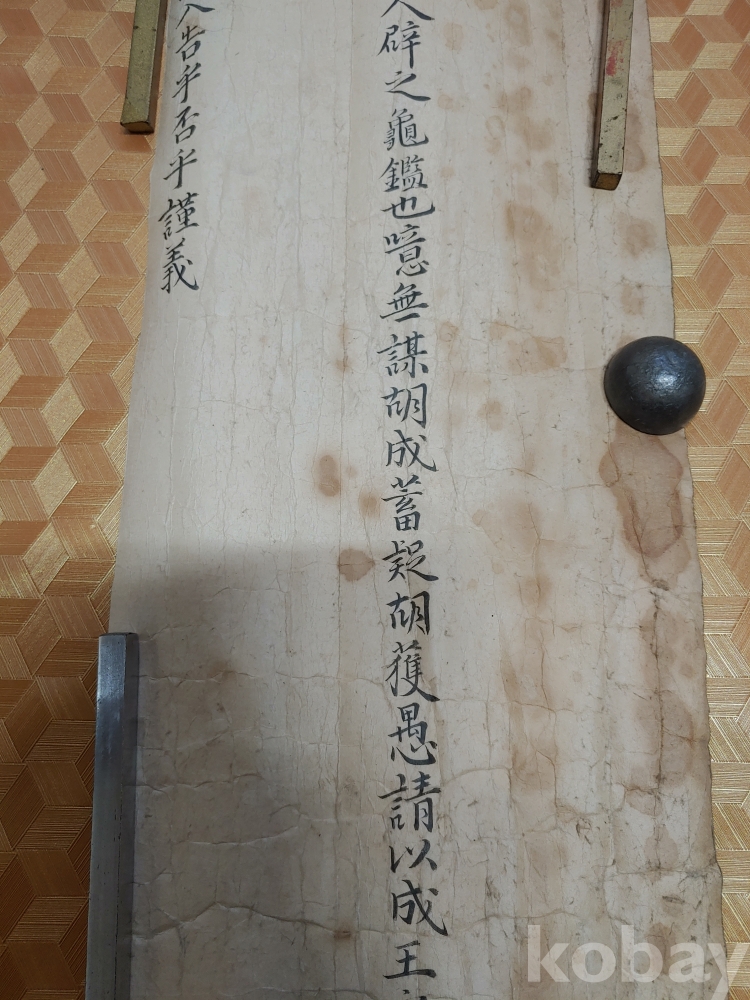 辟之龜鑑也噫無謀胡成蓄疑胡獲愚請以成王
告乎否乎謹義
kobay